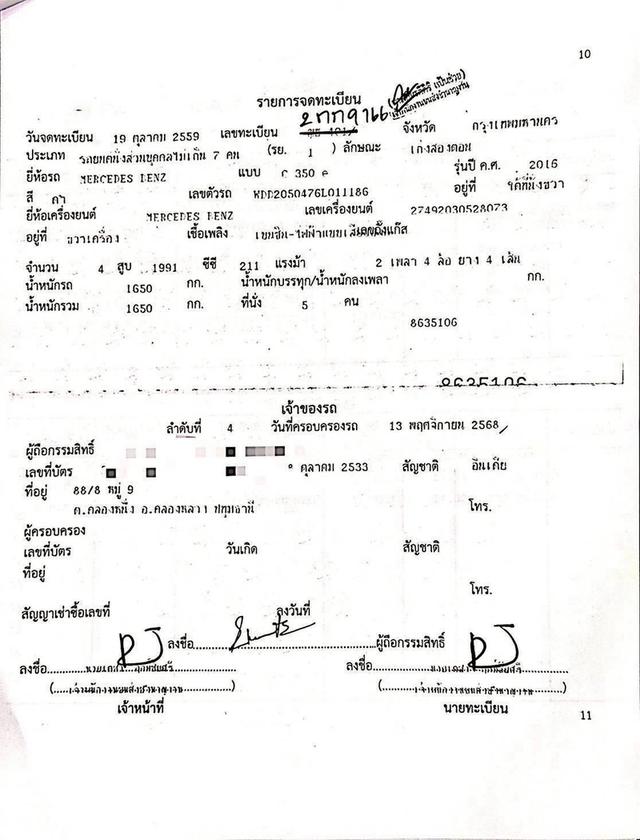 10
รายการจดทะเบียน
วันจดทะเบียน 19 ตุลาคม 2559 เลขทะเบียน จังหวัด กรุงเทพมหานคร
ประเภท รถยนต์นั่งส่วนบุคคลไม่เกิน 7 คน (รย. 1 ) ลักษณะ เก๋งสองตอน
ยี่ห้อรถ MERCEDES BENZ แบบ C 350 e รุ่นปี ค.ศ. 2016
สี เลขตัวรถ WDD2050476L011186 อยู่ที่ ใต้ที่นั่งขวา
ยี่ห้อเครื่องยนต์ MERCEDES BENZ เลขเครื่องยนต์ 27492030528073
อยู่ที่ ขวาเครื่อง เชื้อเพลิง เลขถังแก๊ส
จำนวน 4 สูบ 1991 ซีซี 211 แรงม้า 2 เพลา 4 ล้อ ยาง 4 เส้น
น้ำหนักรถ 1650 กก. น้ำหนักบรรทุก/น้ำหนักลงเพลา กก.
น้ำหนักรวม 1650 กก. ที่นั่ง 5 คน
8635106
8635106
เจ้าของรถ
ลำดับที่ 4 วันที่ครอบครองรถ 13 พฤศจิกายน 2568
ผู้ถือกรรมสิทธิ์
เลขที่บัตร ตุลาคม 2533 สัญชาติ อินเดีย
ที่อยู่ 88/8 หมู่ 9
ต.คลองหนึ่ง อ.คลองหลวง ปทุมธานี โทร.
ผู้ครอบครอง
เลขที่บัตร วันเกิด สัญชาติ
ที่อยู่
โทร.
สัญญาเช่าซื้อเลขที่ ลงวันที่
ลงชื่อ ผู้ถือกรรมสิทธิ์
ลงชื่อ ลงชื่อ
เจ้าหน้าที่ นายทะเบียน
11